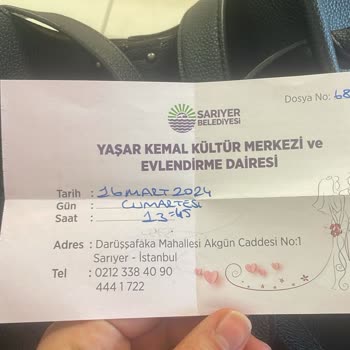 Dosya No: 68
SARIYER
BELEDİYESİ
YAŞAR KEMAL KÜLTÜR MERKEZİ ve
EVLENDİRME DAİRESİ
Tarih : 16 MART 2024
Gün : CUMARTESİ
Saat : 13:45
Adres : Darüşşafaka Mahallesi Akgün Caddesi No:1
Sarıyer - İstanbul
Tel : 0212 338 40 90
444 1 722